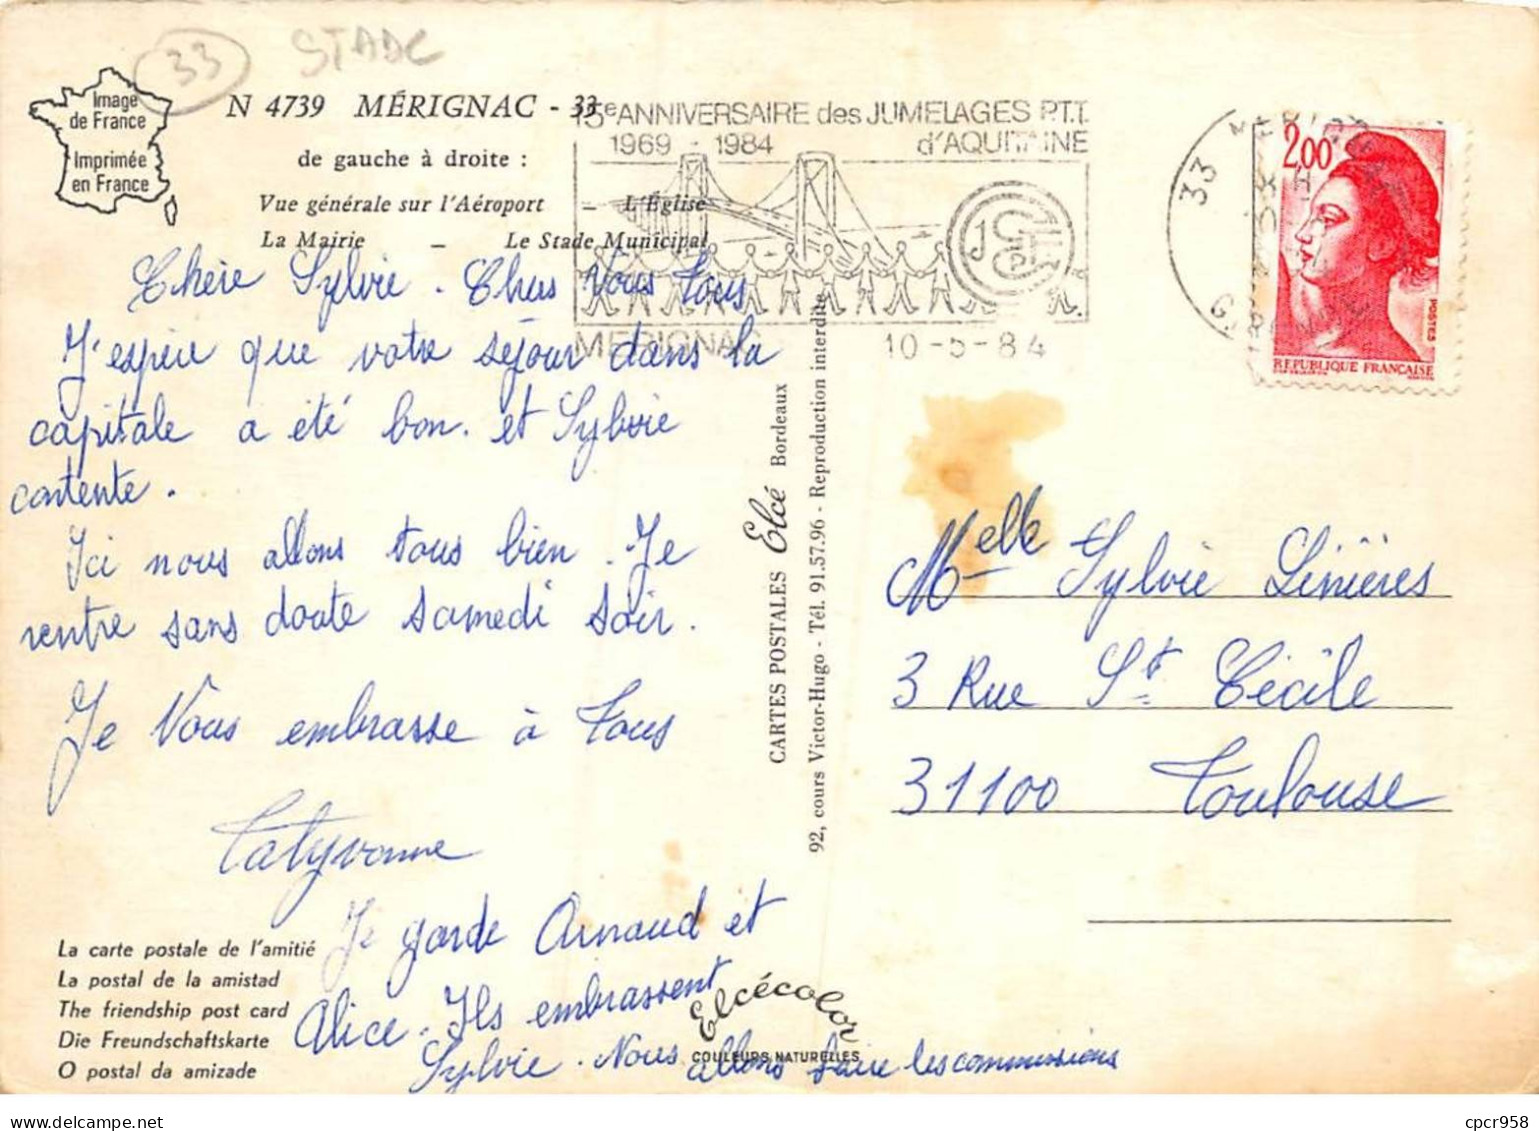 33 STADE
Image
de France
Imprimée
en France
N 4739 MÉRIGNAC - 33
de gauche à droite :
Vue générale sur l'Aéroport – L'Église
La Mairie – Le Stade Municipal
15e ANNIVERSAIRE des JUMELAGES P.T.T.
1969 - 1984 d'AQUITAINE
MERIGNAC 10-5-84
33
2,00
POSTES
REPUBLIQUE FRANÇAISE
Chère Sylvie. Chers Vous Tous
J'espère que votre séjour dans la
capitale a été bon. et Sylvie
contente.
Ici nous allons tous bien. Je
rentre sans doute samedi soir.
Je Vous embrasse à Tous
Tatyvonne
Je garde Arnaud et
Alice. Ils embrassent
Sylvie. Nous allons faire les commissions
La carte postale de l'amitié
La postal de la amistad
The friendship post card
Die Freundschaftskarte
O postal da amizade
Elcécolor
COULEURS NATURELLES
CARTES POSTALES Elcé Bordeaux
92, cours Victor-Hugo - Tél. 91.57.96 - Reproduction interdite
Melle Sylvie Linières
3 Rue St Cécile
31100 Toulouse
cpcr958